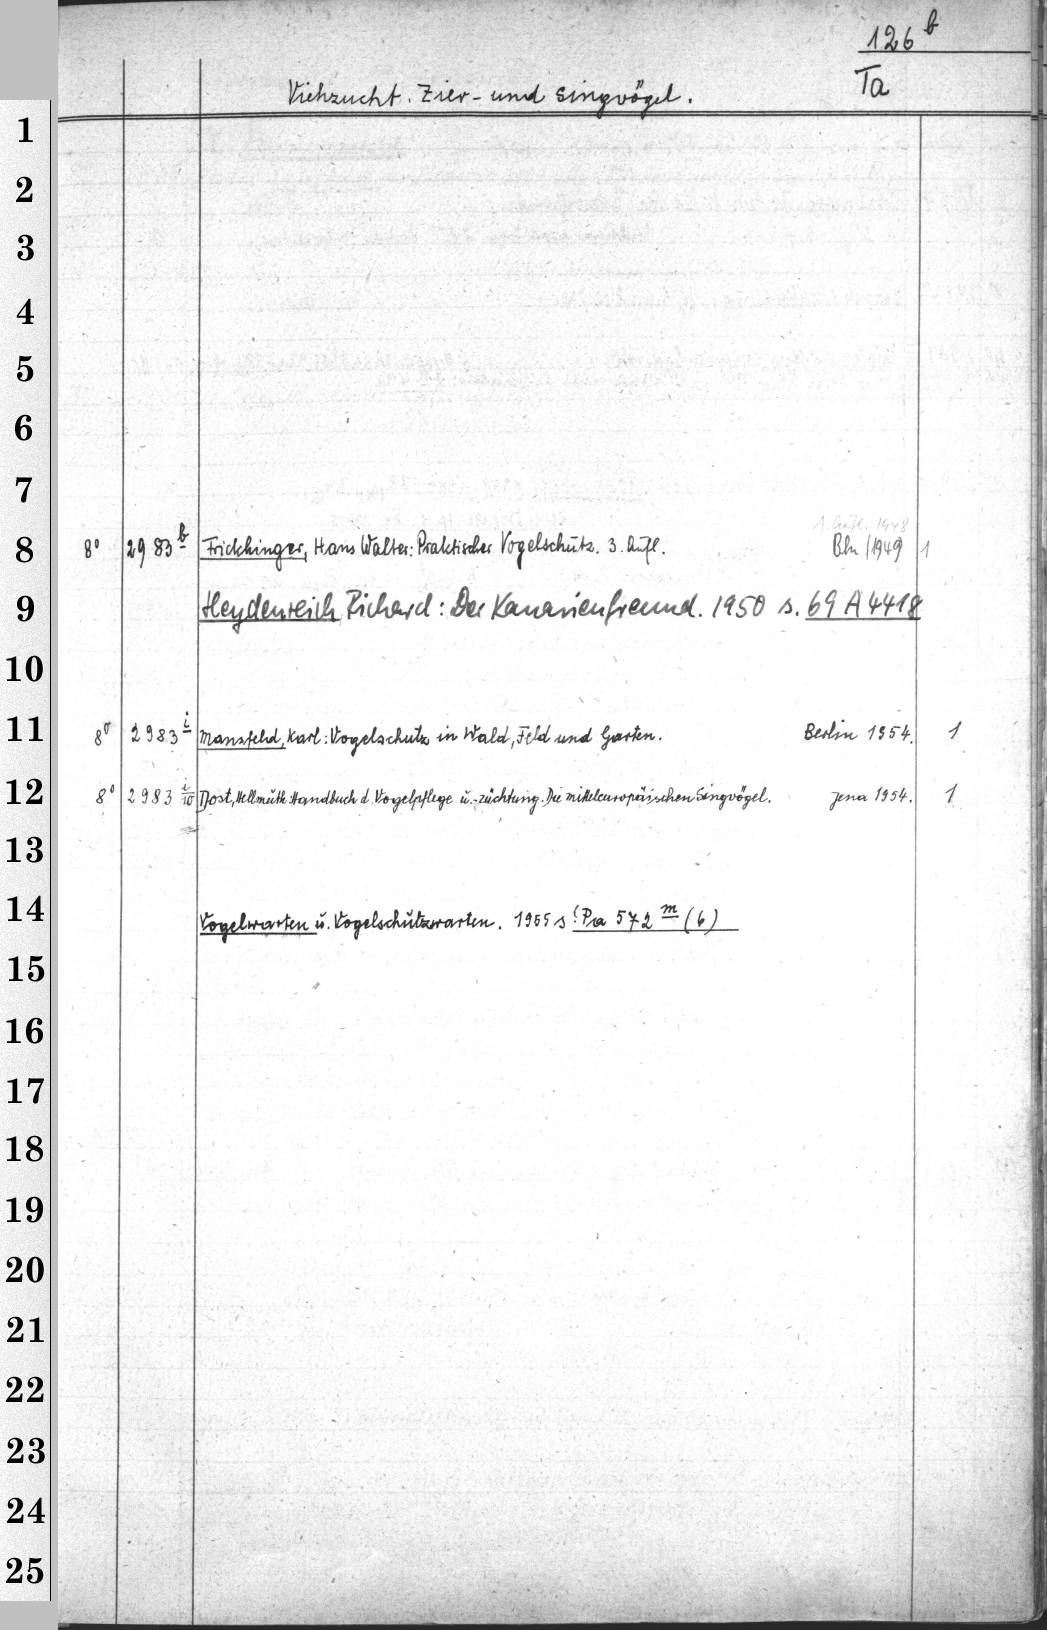 126 b
Ta
Viehzucht. Zier- und Singvögel.
1
2
3
4
5
6
7
1. Aufl. 1948
8 8° 2983 b Frickhinger, Hans Walter: Praktischer Vogelschutz. 3. Aufl. Bln (1949) 1
9 Heydenreich Richard: Der Kanarienfreund. 1950 s. 69 A 4418
10
11 8° 2983 i Mansfeld, Karl: Vogelschutz in Wald, Feld und Garten. Berlin 1954. 1
12 8° 2983 i/10 Dost, Hellmuth: Handbuch d. Vogelpflege u. -züchtung. Die mitteleuropäischen Singvögel. Jena 1954. 1
13
14 Vogelwarten u. Vogelschutzwarten. 1955 s: Pra 572 m (6)
15
16
17
18
19
20
21
22
23
24
25